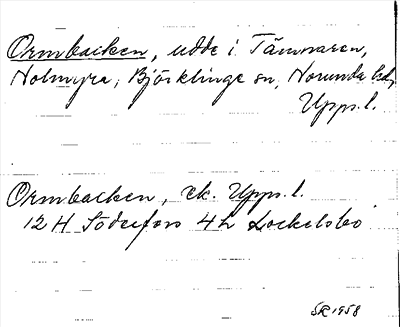 Ormbacken, udde i Tämnaren,
Holmyra, Björklinge sn, Norunda hd,
Upps. l.
Ormbacken, ek. Upps. l.
12 H Söderfors 4h Lockelsbo
SR 1958